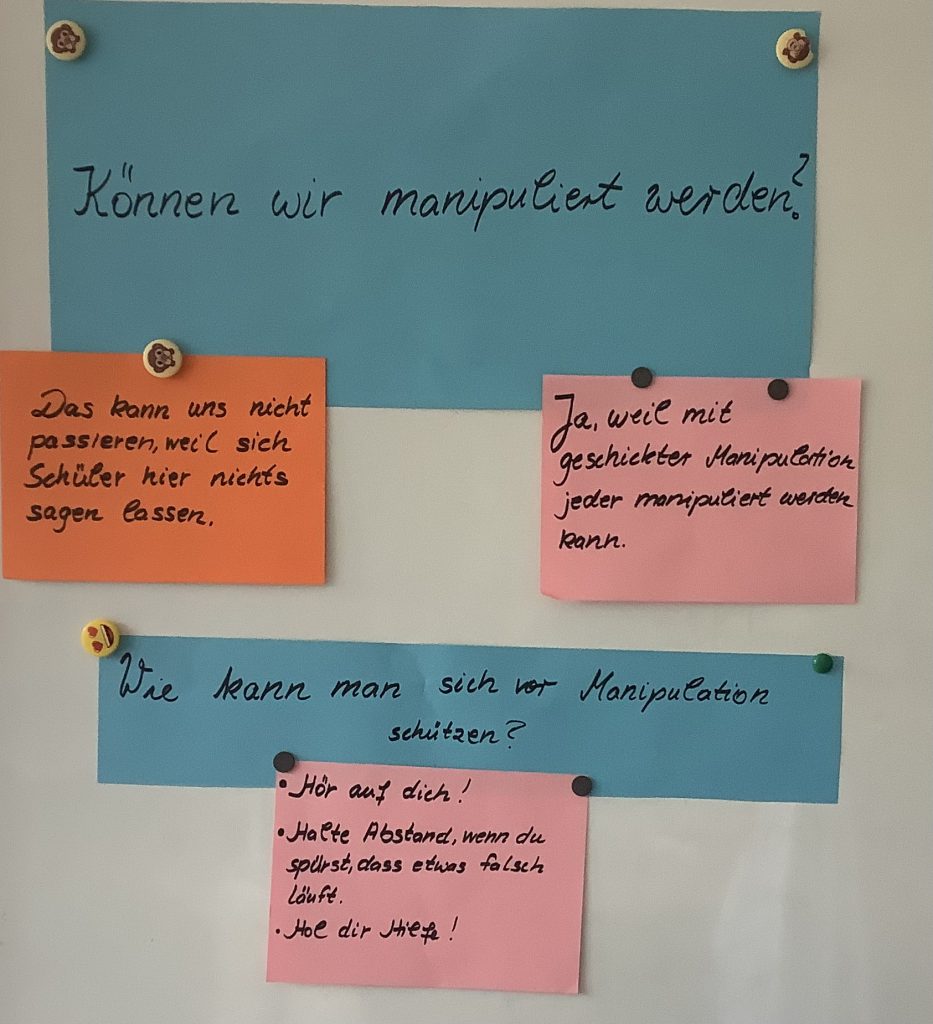 Können wir manipuliert werden?
Das kann uns nicht
passieren, weil sich
Schüler hier nichts
sagen lassen.
Ja, weil mit
geschickter Manipulation
jeder manipuliert werden
kann.
Wie kann man sich vor Manipulation
schützen?
• Hör auf dich!
• Halte Abstand, wenn du
spürst, dass etwas falsch
läuft.
• Hol dir Hilfe!